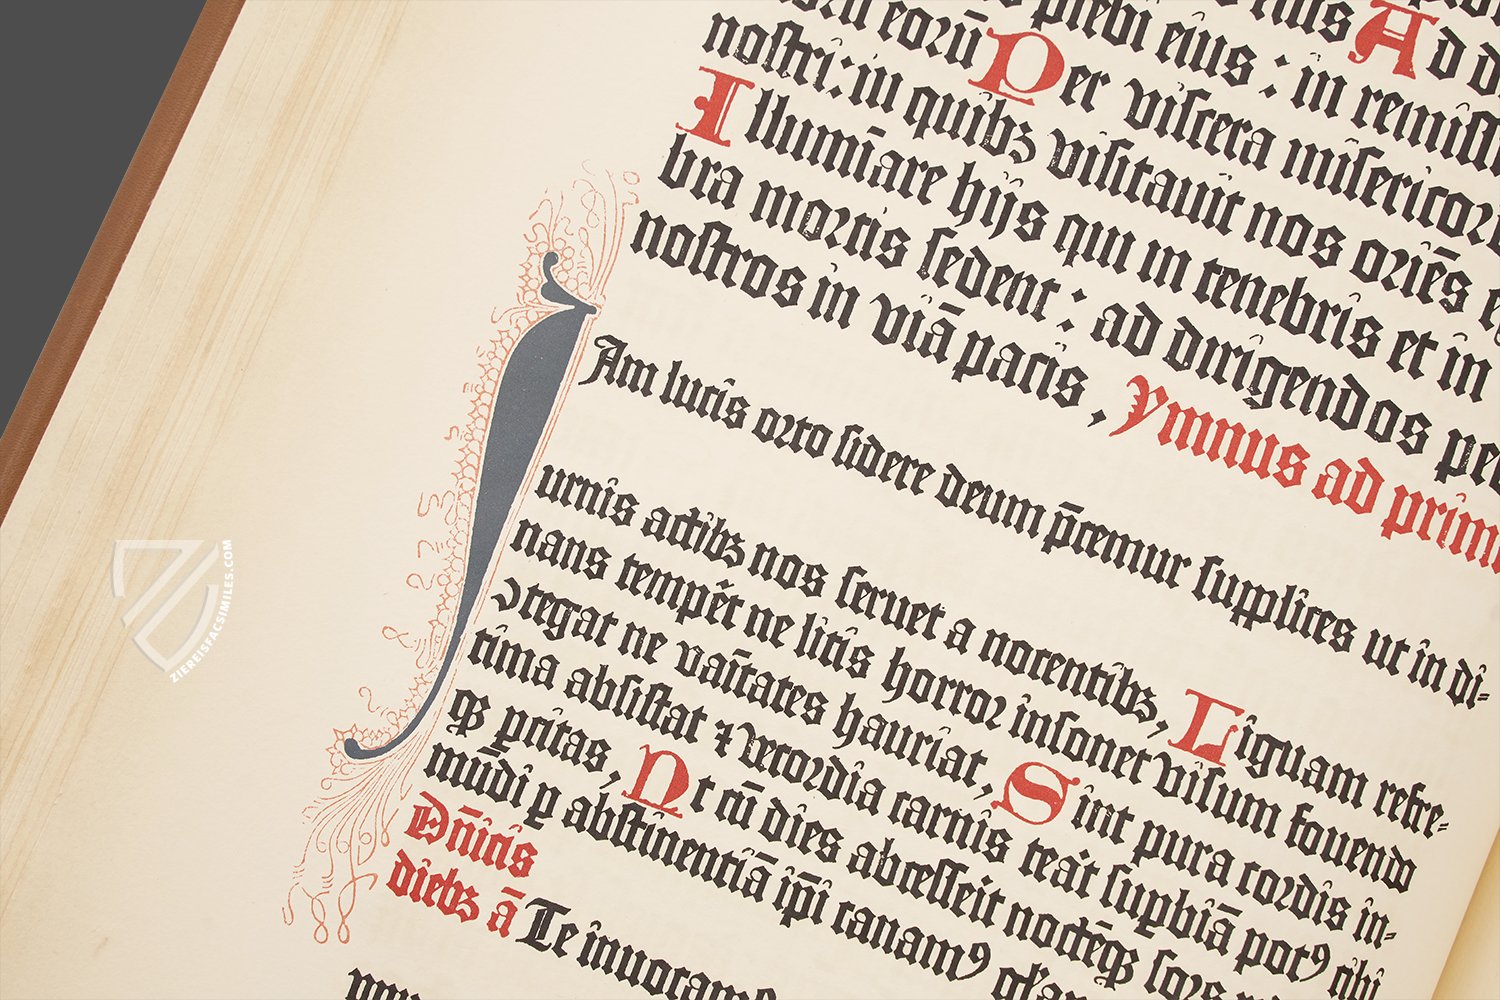 plebi eius : in remiss
eorū Per viscera misericor
nostri: in quibꝫ visitauit nos oriēs e
Illumīare hijs qui in tenebris et in
bra mortis sedent : ad dirigendos pe
nostros in viā pacis, ymnus ad prim
IAm lucis orto sidere deum p̄cemur supplices ut in di-
urnis actibꝫ nos seruet a nocentibꝫ, Liguam refre-
nans tempet ne litis horror insonet visum fouendo
ↄtegat ne vaītates hauriat, Sint pura cordis in-
tima absistat ⁊ vecordia carnis teat supbiā potꝰ cibi
qꝫ pcitas, Ut cū dies abcesseit noctēqꝫ sors
mūdi p abstinentiā ip̄i canamꝰ glam
Dn̄icis
diebꝫ ā Te inuocamꝰ
ZIEREISFACSIMILES.COM